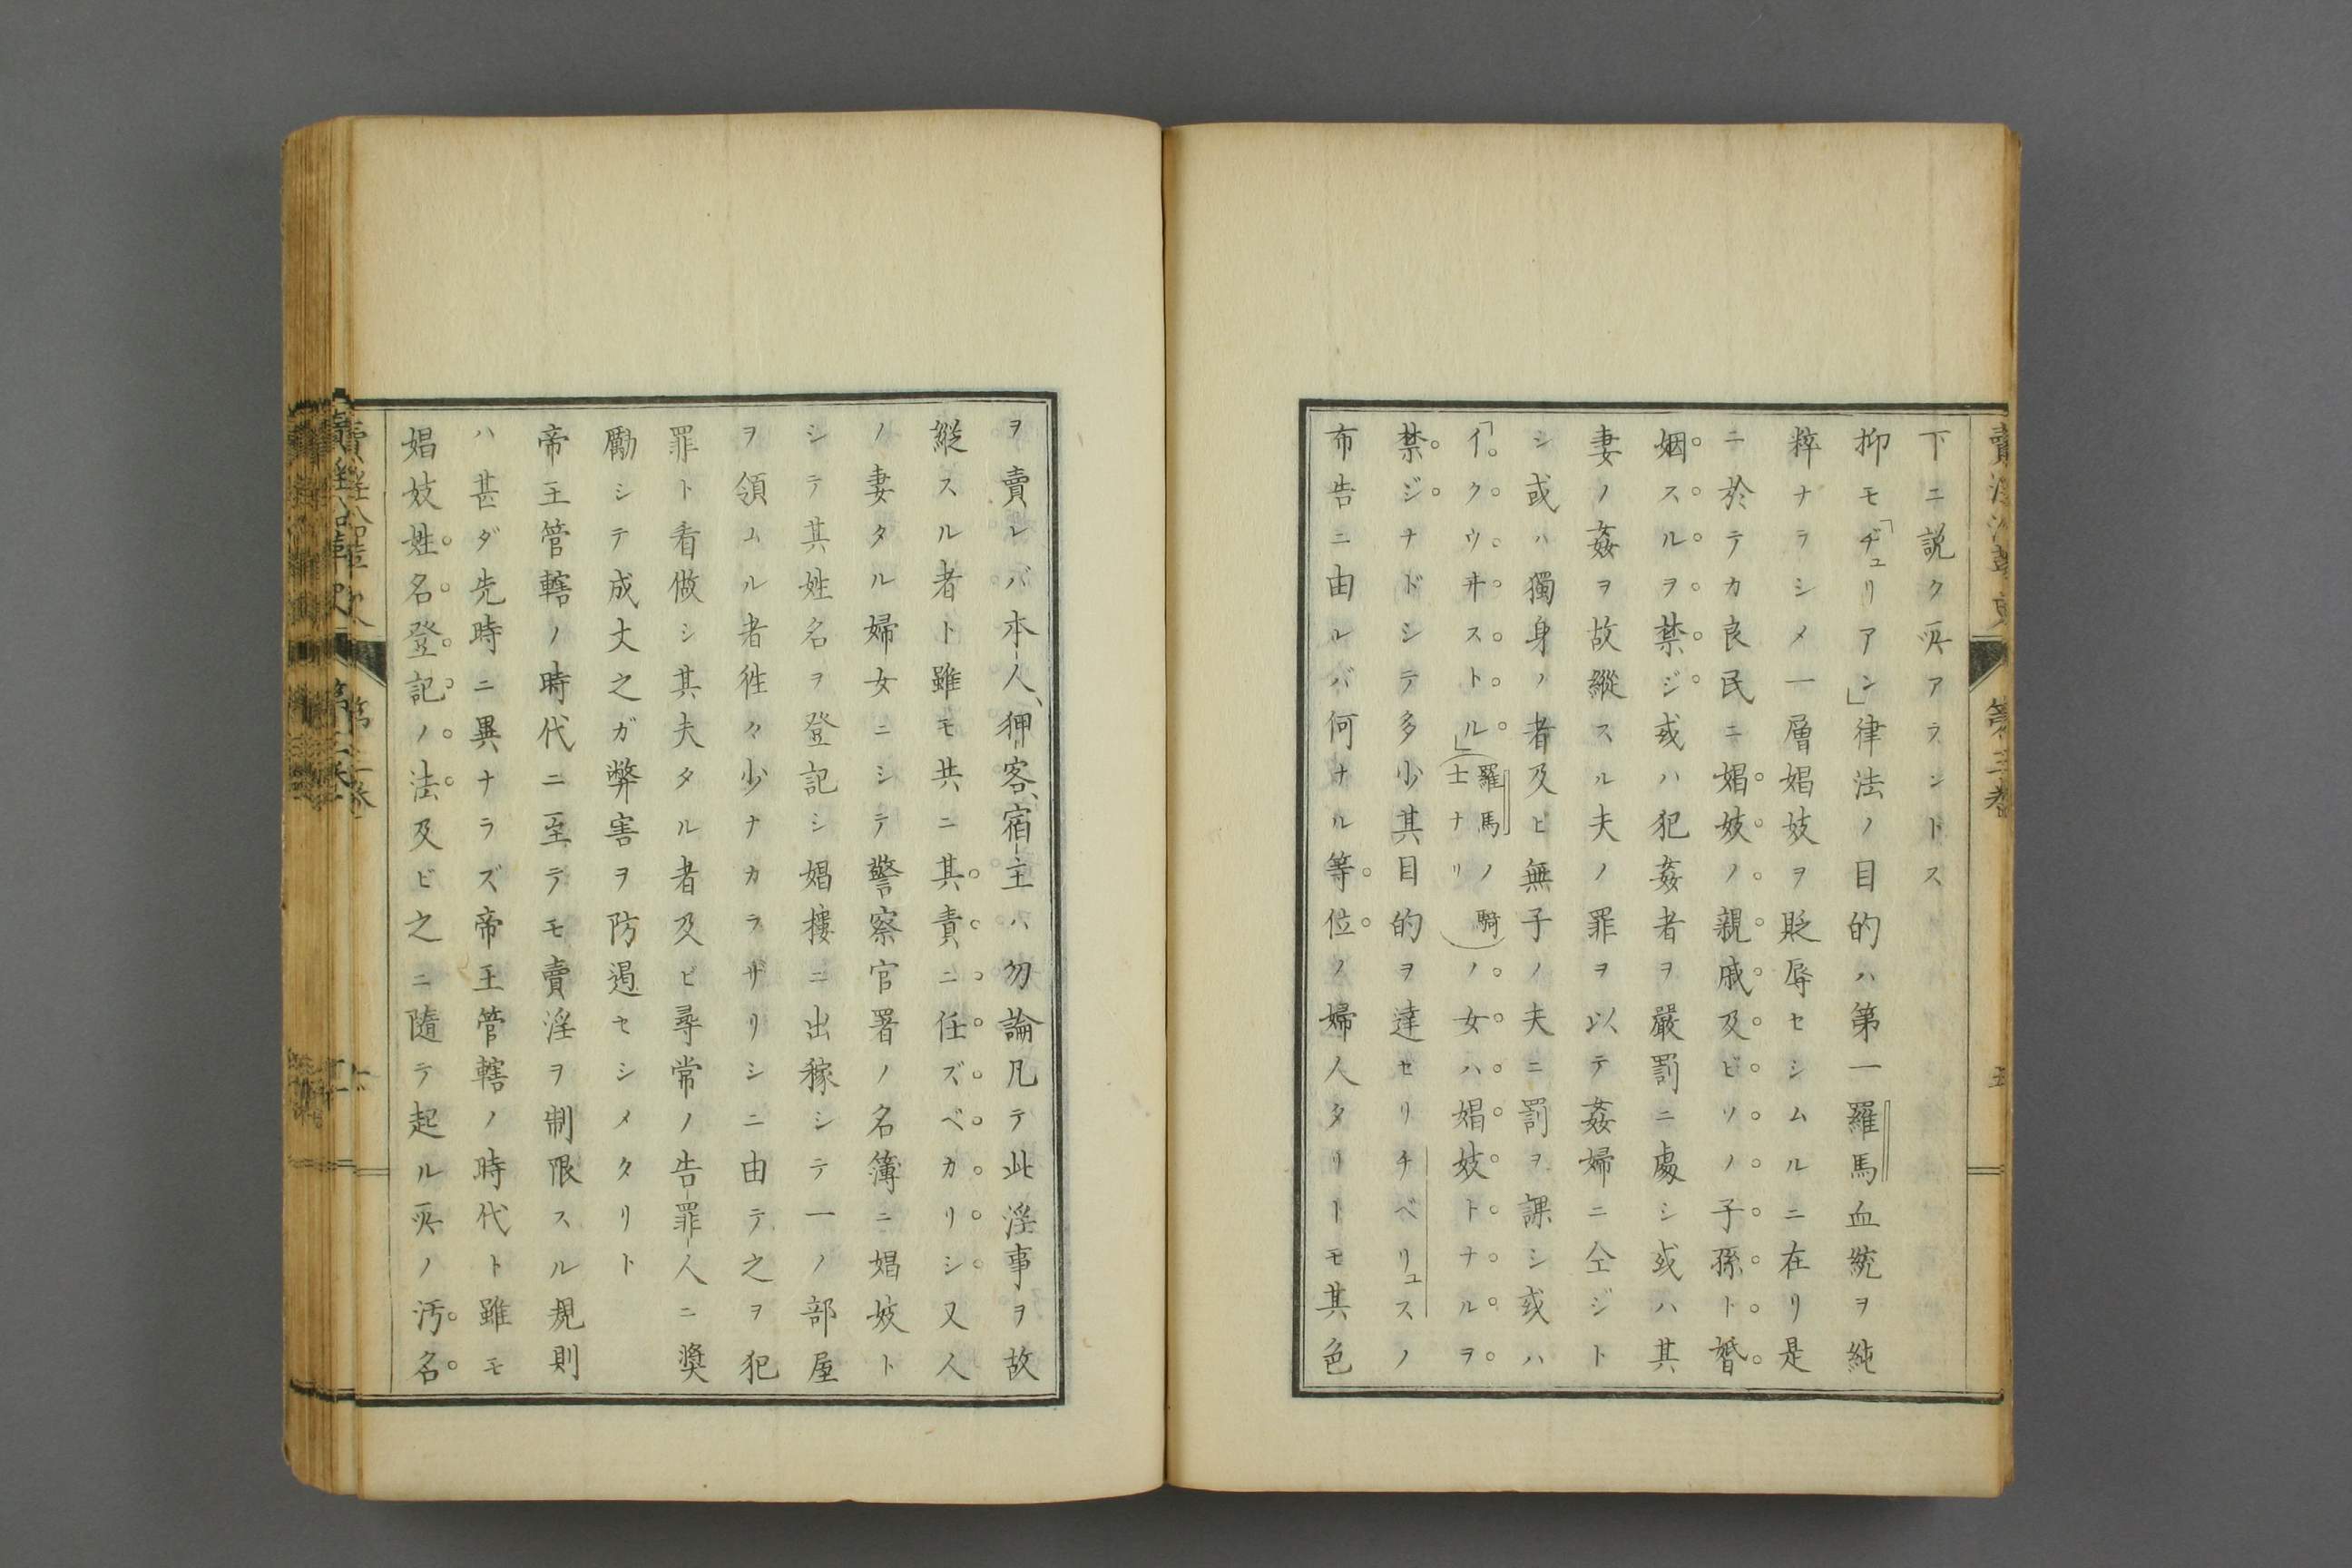 下ニ説ク所アラントス
抑モ「ヂュリアン」律法ノ目的ハ第一羅馬血統ヲ純
粹ナラシメ一層娼妓ヲ貶辱セシムルニ在リ是
ニ於テカ良民ニ娼妓ノ親戚及ビソノ子孫ト婚
姻スルヲ禁ジ或ハ犯姦者ヲ嚴罰ニ處シ或ハ其
妻ノ姦ヲ故縱スル夫ノ罪ヲ以テ姦婦ニ仝ジト
シ或ハ獨身ノ者及ビ無子ノ夫ニ罰ヲ課シ或ハ
「イクウ井ストル」(羅馬ノ騎士ナリ)ノ女ハ娼妓トナルヲ
禁ジナドシテ多少其目的ヲ達セリチベリュスノ
布告ニ由ルバ何ナル等位ノ婦人タリトモ其色
ヲ賣レバ本人、狎客、宿主ハ勿論凡テ此淫事ヲ故
縱スル者ト雖モ共ニ其責ニ任ズベカリシ又人
ノ妻タル婦女ニシテ警察官署ノ名簿ニ娼妓ト
シテ其姓名ヲ登記シ娼樓ニ出稼シテ一ノ部屋
ヲ領ムル者徃々少ナカラザリシニ由テ之ヲ犯
罪ト看做シ其夫タル者及ビ尋常ノ告罪人ニ奬
勵シテ成丈之ガ弊害ヲ防遏セシメタリト
帝王管轄ノ時代ニ至テモ賣淫ヲ制限スル規則
ハ甚ダ先時ニ異ナラズ帝王管轄ノ時代ト雖モ
娼妓姓名登記ノ法及ビ之ニ隨テ起ル所ノ汚名